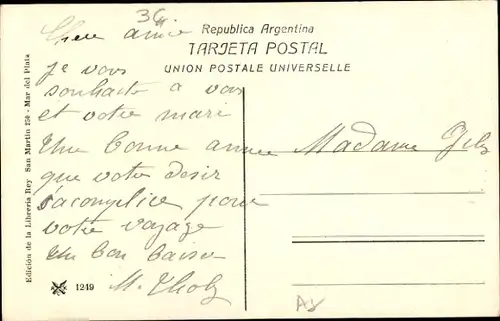 36
Republica Argentina
TARJETA POSTAL
UNION POSTALE UNIVERSELLE
Chere amie
Je vous
souhaite a vous
et votre mari
Une bonne annee
que votre desir
s'acomplice pour
votre voyage
Un bon baiser
M.
Madame
Edición de la Libreria Rey San Martin 250 - Mar del Plata
1249